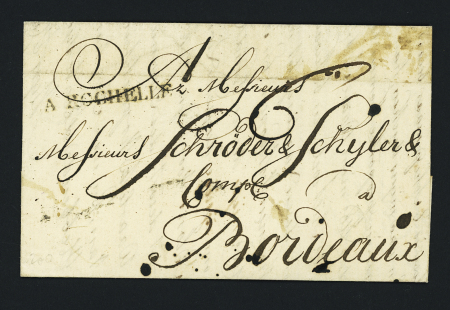 A Messieurs
A ROCHELLE
Messieurs Schröder & Schyler &
Comp^e
à
Bordeaux